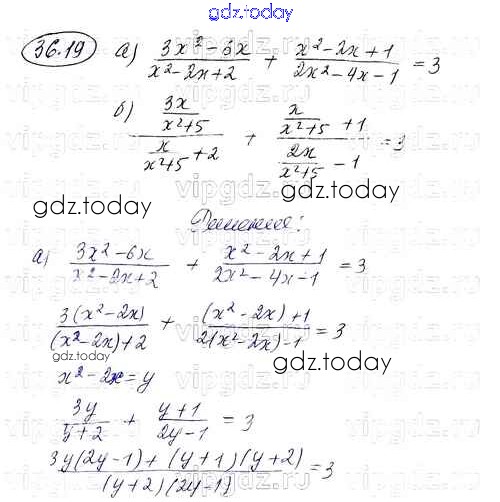 gdz.today
36.19 а) (3x² - 6x)/(x² - 2x + 2) + (x² - 2x + 1)/(2x² - 4x - 1) = 3
б) (3x/(x²+5))/(x/(x²+5) + 2) + (x/(x²+5) + 1)/(2x/(x²+5) - 1) = 3
gdz.today
gdz.today
Решение:
а) (3x² - 6x)/(x² - 2x + 2) + (x² - 2x + 1)/(2x² - 4x - 1) = 3
3(x² - 2x)/((x² - 2x) + 2) + ((x² - 2x) + 1)/(2(x² - 2x) - 1) = 3
gdz.today
gdz.today
x² - 2x = y
3y/(y+2) + (y+1)/(2y-1) = 3
(3y(2y-1) + (y+1)(y+2))/((y+2)(2y-1)) = 3